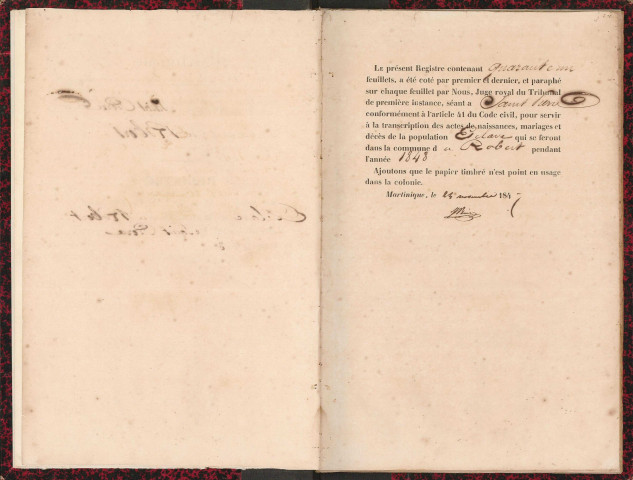 Le présent Registre contenant quarante un
feuillets, a été coté par premier et dernier, et paraphé
sur chaque feuillet par Nous, Juge royal du Tribunal
de première instance, séant a Saint Pierre
conformément à l'article 41 du Code civil, pour servir
à la transcription des actes de naissances, mariages et
décès de la population Esclave qui se feront
dans la commune du Robert pendant
l'année 1848
Ajoutons que le papier timbré n'est point en usage
dans la colonie.
Martinique, le 25 novembre 1847